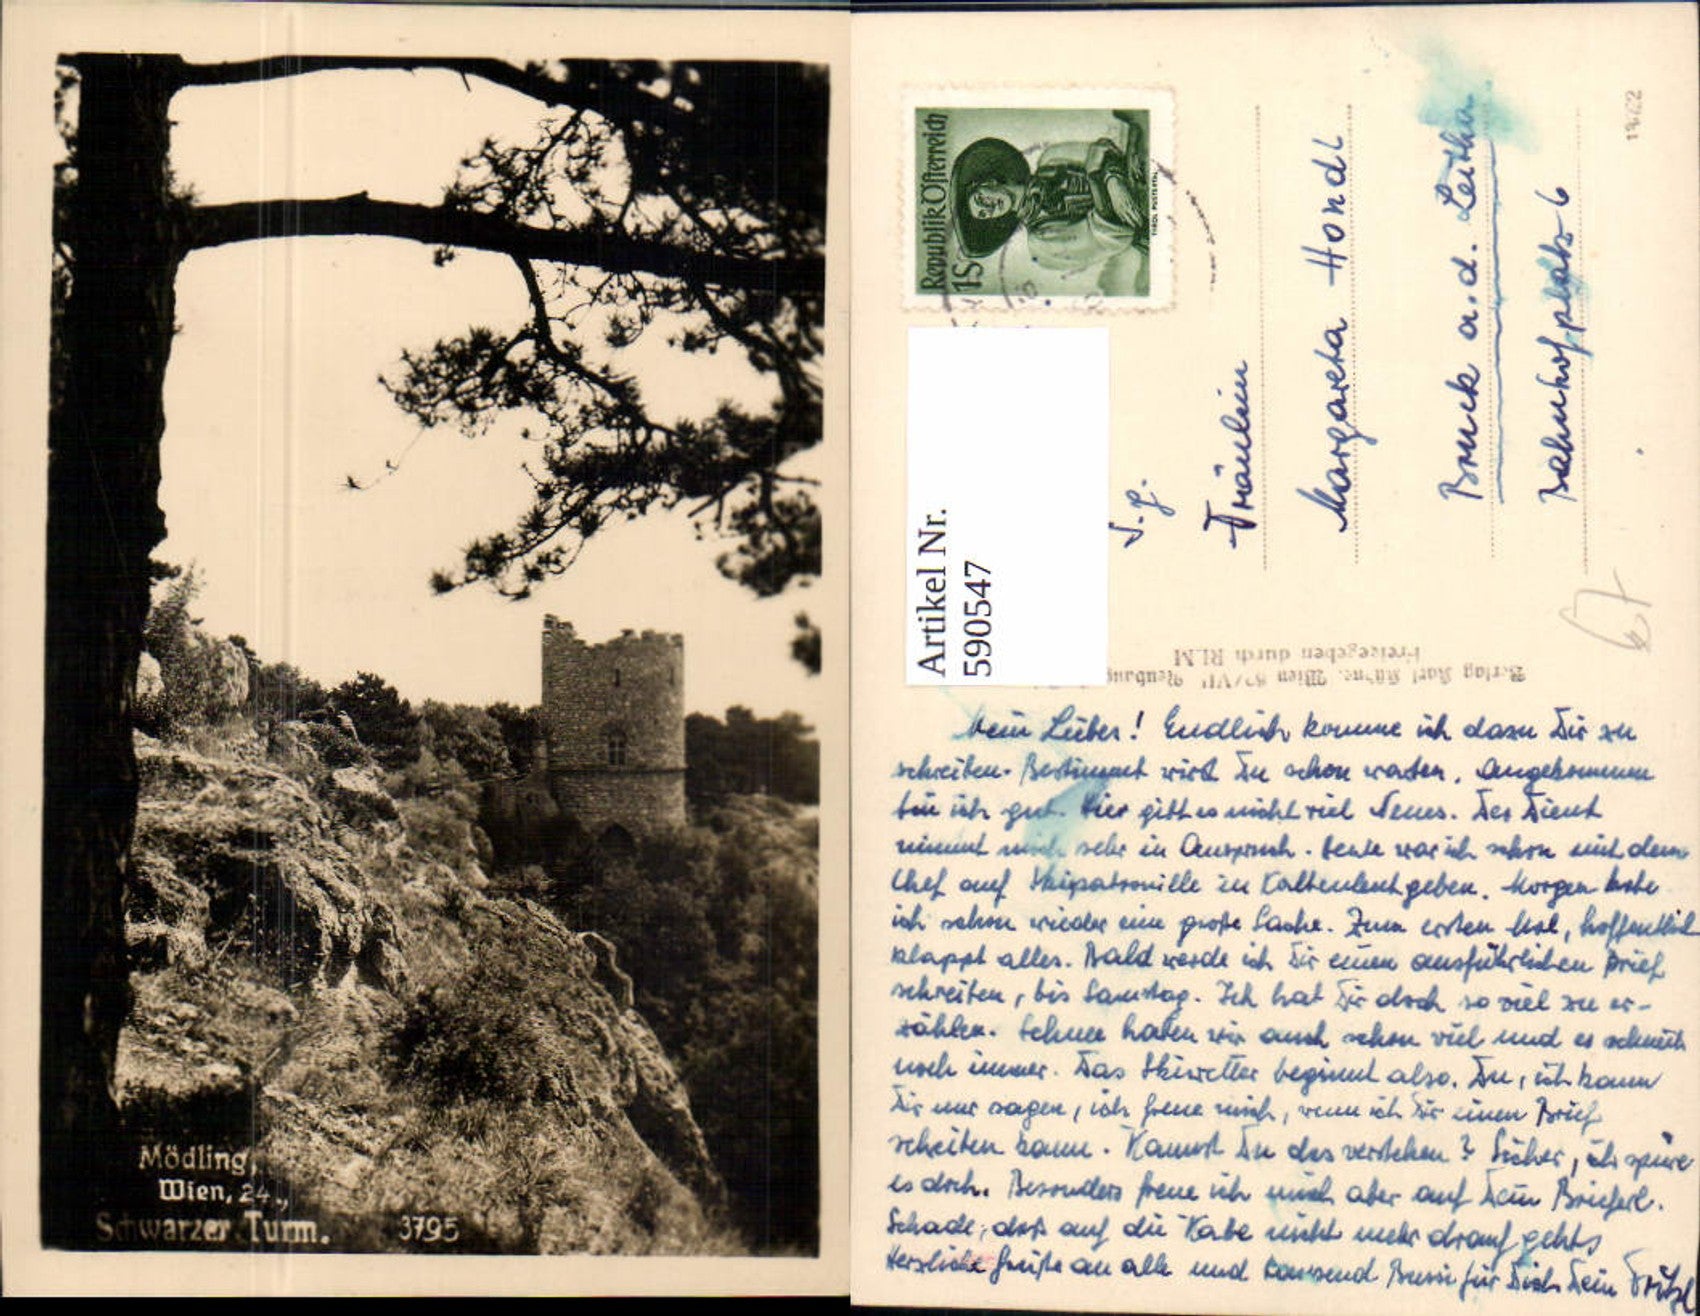 Mödling,
Wien, 24.,
Schwarzer Turm. 3795
Republik Österreich
1S
TIROL PUSTERTAL
Artikel Nr.
590547
S.g.
Fräulein
Margareta Hondl
Bruck a.d. Leitha
Bahnhofplatz 6
1962
67
Verlag Karl Wien 62/VII
Freigegeben durch RLM
Mein Lieber! Endlich komme ich dazu Dir zu
schreiben. Bestimmt wirst Du schon warten. Angekommen
bin ich gut. Hier gibt es nicht viel Neues. Der Dienst
nimmt mich sehr in Anspruch. Heute war ich schon mit dem
Chef auf Skipatrouille in Kaltenleutgeben. Morgen habe
ich schon wieder eine große Sache. Zum ersten Mal, hoffentlich
klappt alles. Bald werde ich Dir einen ausführlichen Brief
schreiben, bis Samstag. Ich hab Dir doch so viel zu er-
zählen. Schnee haben wir auch schon viel und es schneit
noch immer. Das Skiwetter beginnt also. Du, ich kann
Dir nur sagen, ich freue mich, wenn ich Dir einen Brief
schreiben kann. Kannst Du das verstehen? Sicher, ich spüre
es doch. Besonders freue ich mich aber auf Dein Brieferl.
Schade, daß auf die Karte nicht mehr drauf geht.
Herzliche Grüße an alle und tausend Bussi für Dich Dein Fritzl